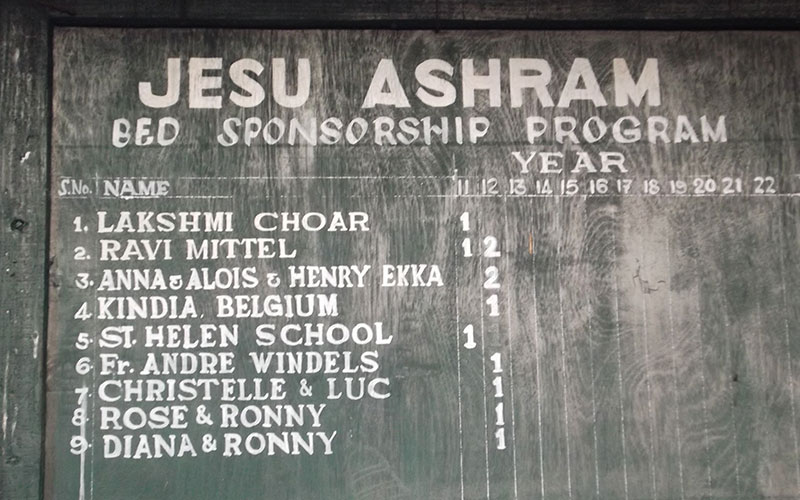 JESU ASHRAM
BED SPONSORSHIP PROGRAM
YEAR
S.No. NAME 11 12 13 14 15 16 17 18 19 20 21 22
1. LAKSHMI CHOAR 1
2. RAVI MITTEL 1 2
3. ANNA & ALOIS & HENRY EKKA 2
4 KINDIA. BELGIUM 1
5. ST. HELEN SCHOOL 1
6. Fr. ANDRE WINDELS 1
7. CHRISTELLE & LUC 1
8. ROSE & RONNY 1
9. DIANA & RONNY 1